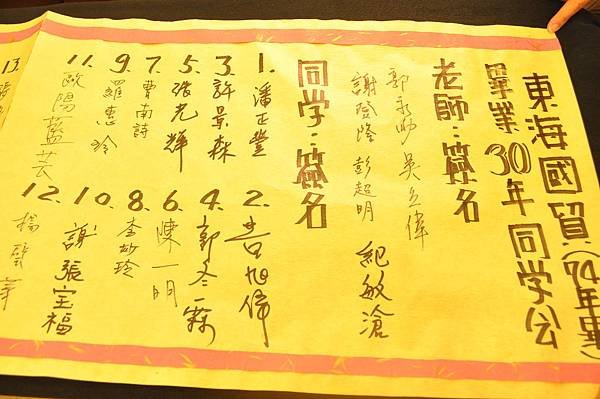 東海國貿(74年畢
畢業30年同学公
老師:簽名
郭 吳 偉
謝登隆 彭超明 紀敏滄
同学:簽名
1. 潘正豐
2. 旭偉
3. 許景森
4. 郭冬霖
5. 張光輝
6. 陳一明
7. 曹南詩
8. 李妙玲
9. 羅惠玲
10. 謝張宝福
11. 歐陽藍芸
12. 楊
13.